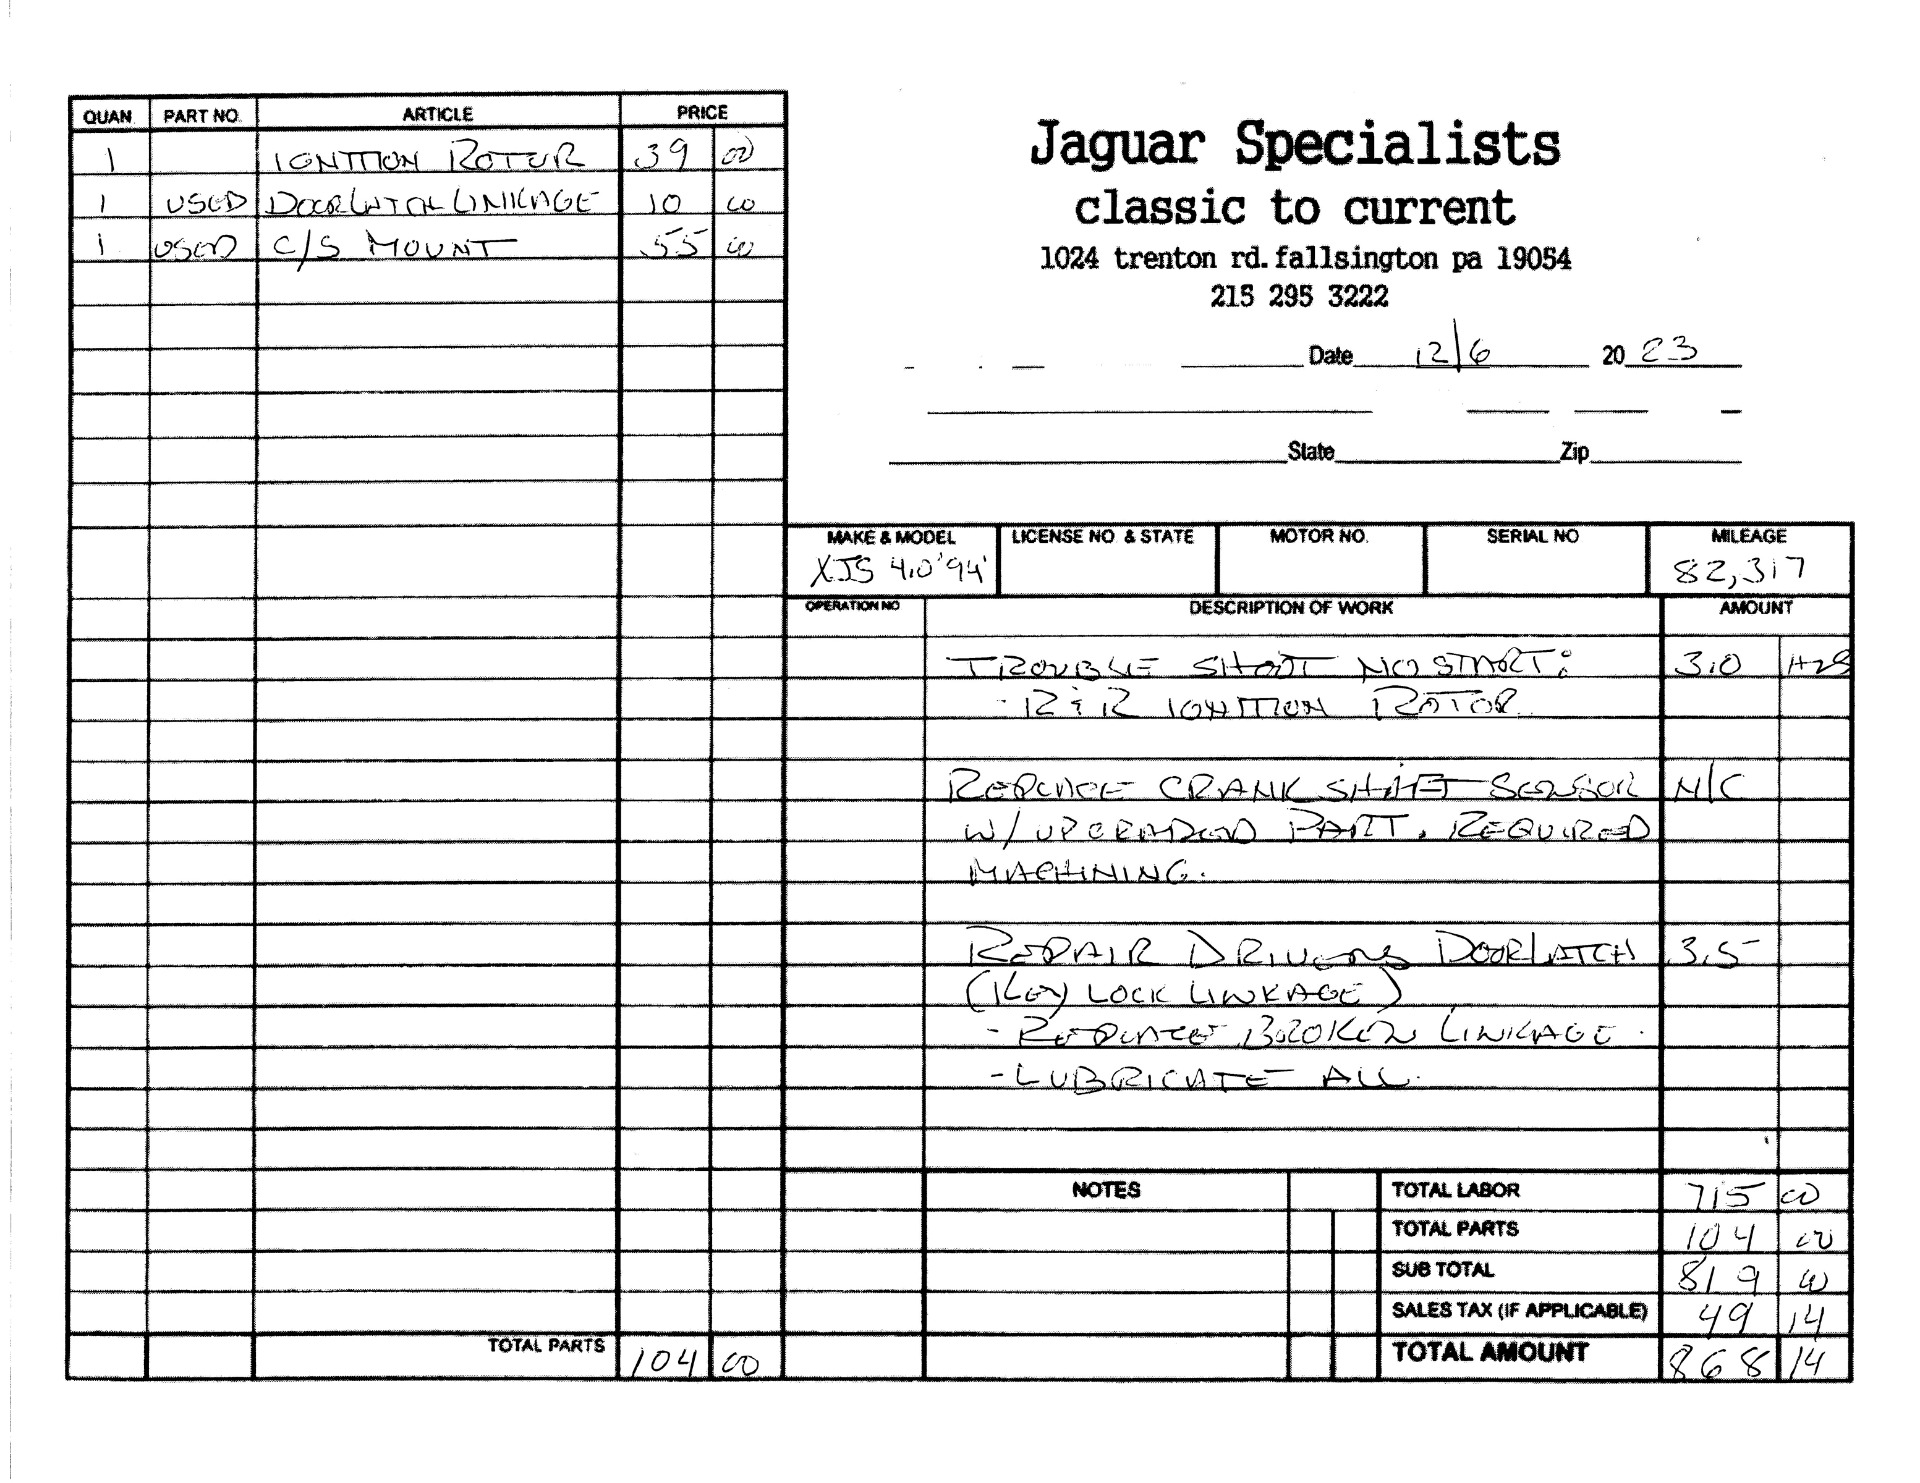 QUAN PART NO. ARTICLE PRICE
1 IGNITION ROTOR 39 00
1 USED DOOR LATCH LINKAGE 10 00
1 USED C/S MOUNT 55 00
TOTAL PARTS 104 00
Jaguar Specialists
classic to current
1024 trenton rd. fallsington pa 19054
215 295 3222
Date 12/6 20 23
State Zip
MAKE & MODEL LICENSE NO & STATE MOTOR NO. SERIAL NO MILEAGE
XJS 4.0 '94' 82,317
OPERATION NO DESCRIPTION OF WORK AMOUNT
TROUBLE SHOOT NO START: 3.0 HRS
- R & R IGNITION ROTOR.
REPLACE CRANK SHAFT SENSOR N/C
W/ UPGRADED PART. REQUIRED
MACHINING.
REPAIR DRIVERS DOOR LATCH 3.5
(KEY LOCK LINKAGE)
- REPLACE BROKEN LINKAGE.
- LUBRICATE ALL.
NOTES TOTAL LABOR 715 00
TOTAL PARTS 104 00
SUB TOTAL 819 00
SALES TAX (IF APPLICABLE) 49 14
TOTAL AMOUNT 868 14